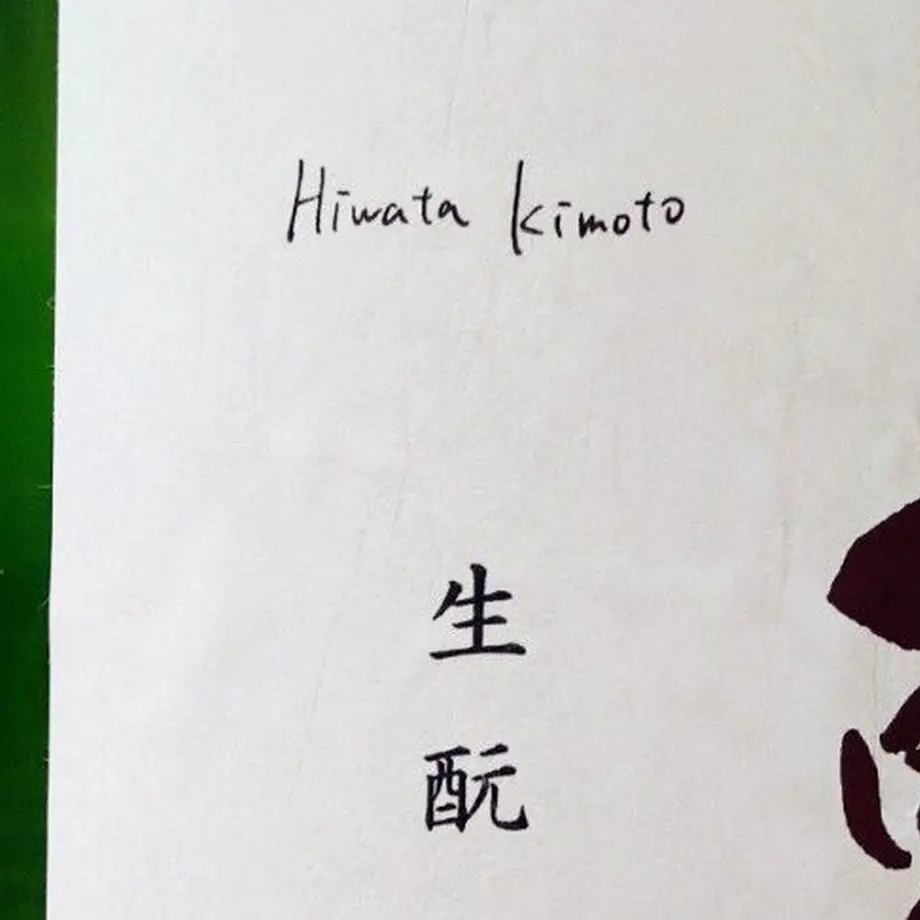 Hiwata Kimoto
生酛